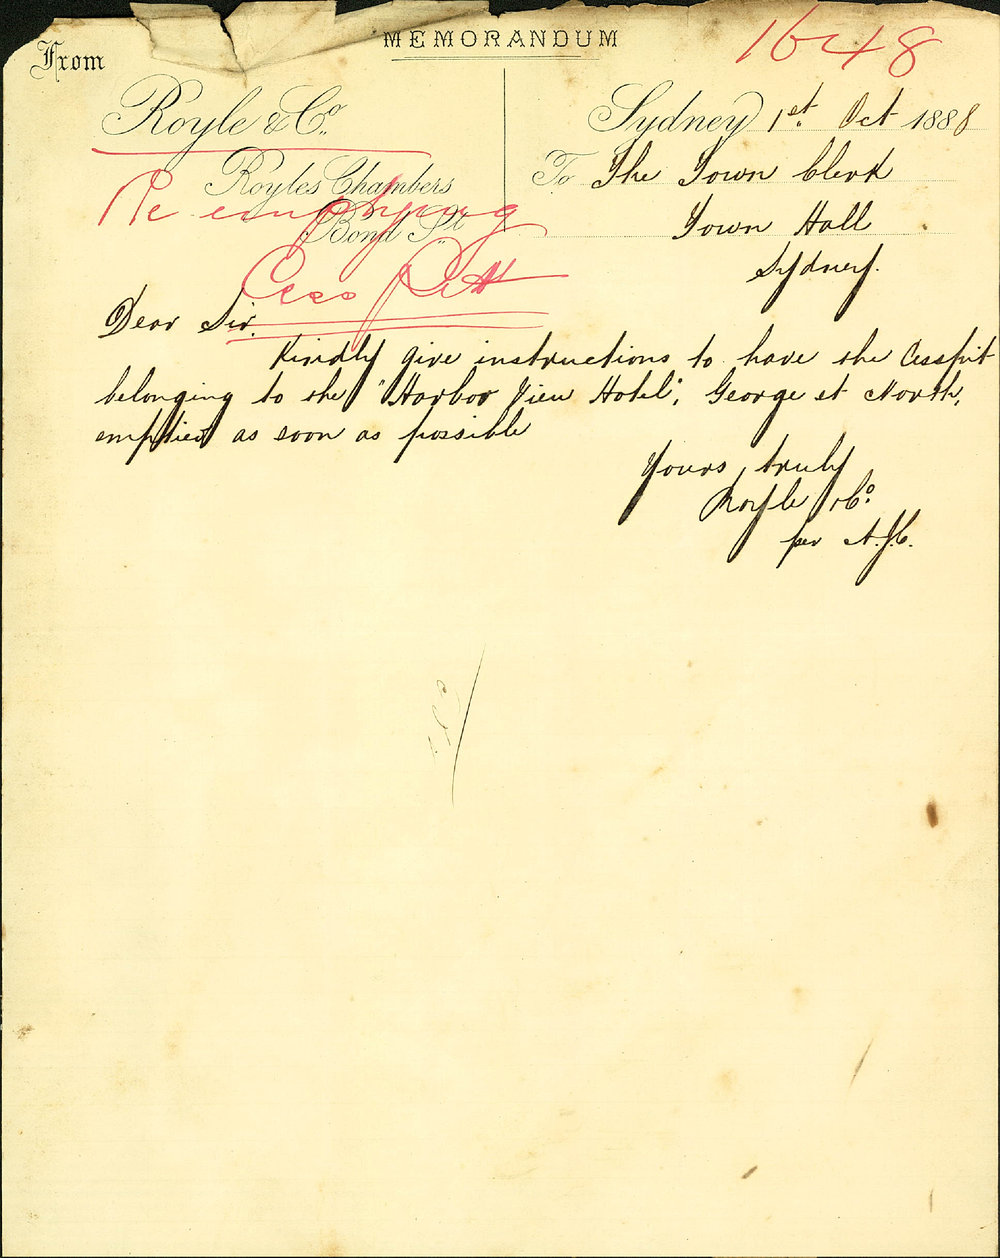 MEMORANDUM
1648
From
Royle & Co.
Sydney 1st. Oct 1888
Royles Chambers
To The Town Clerk
Re emptying
Bond St.
Town Hall
Cess Pitt
Sydney.
Dear Sir.
Kindly give instructions to have the Cesspit
belonging to the "Harbor View Hotel", George st North,
emptied as soon as possible
Yours truly
Royle & Co.
per A.J.C.